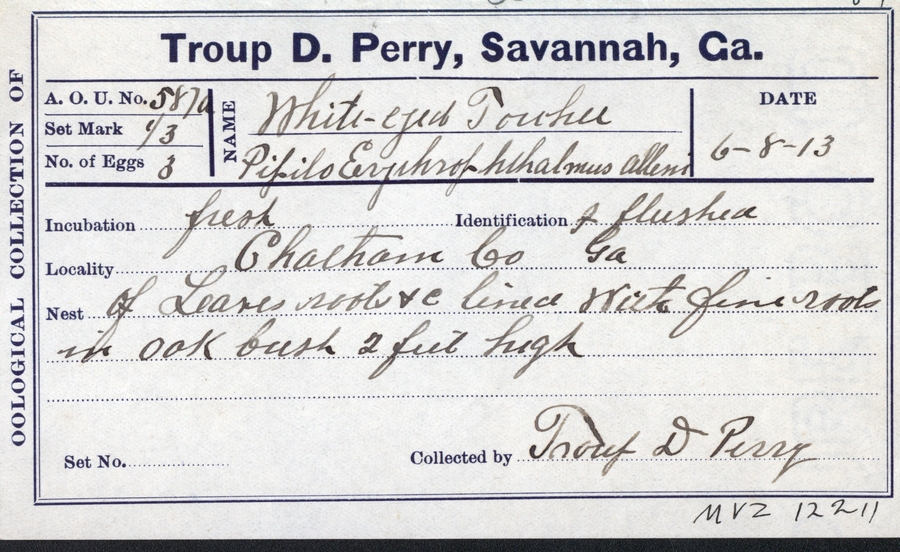 OOLOGICAL COLLECTION OF
Troup D. Perry, Savannah, Ga.
A. O. U. No. 587a
Set Mark 1/3
No. of Eggs 3
NAME
White-eyed Towhee
Pipilo Erythrophthalmus alleni
DATE
6-8-13
Incubation fresh Identification flushed
Locality Chatham Co Ga
Nest of Leaves roots &c lined with fine roots
in oak bush 2 feet high
Set No. Collected by Troup D Perry
MVZ 12211